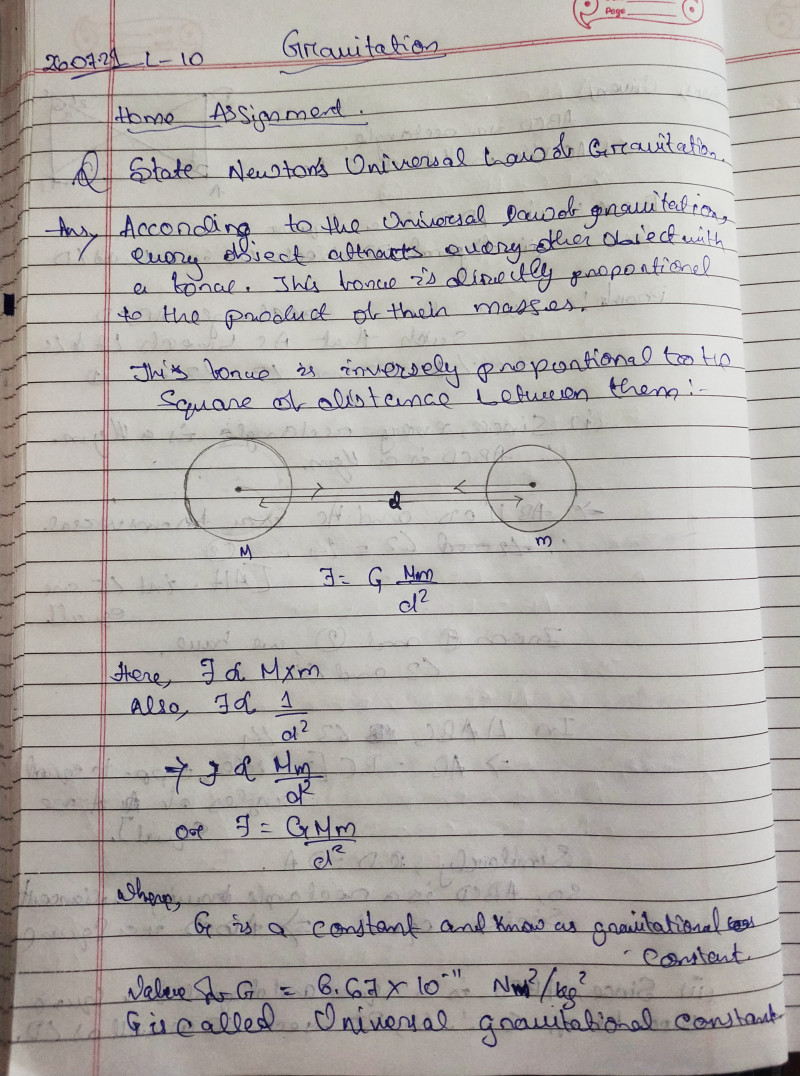 Page
26.07.21 L-10 Gravitation
Home Assignment.
Q State Newton's Universal Law of Gravitation.
Ans, According to the Universal law of gravitation,
every object attracts every other object with
a force. This force is directly proportional
to the product of their masses.
This force is inversely proportional to the
Square of distance between them :-
d
M m.
F = G Mm/d²
Here, F α M×m
Also, F α 1/d²
⇒ F α Mm/d²
or F = GMm/d²
where,
G is a constant and know as gravitational
constant.
Value of G = 6.67 × 10⁻¹¹ Nm²/kg²
G is called Universal gravitational constant.